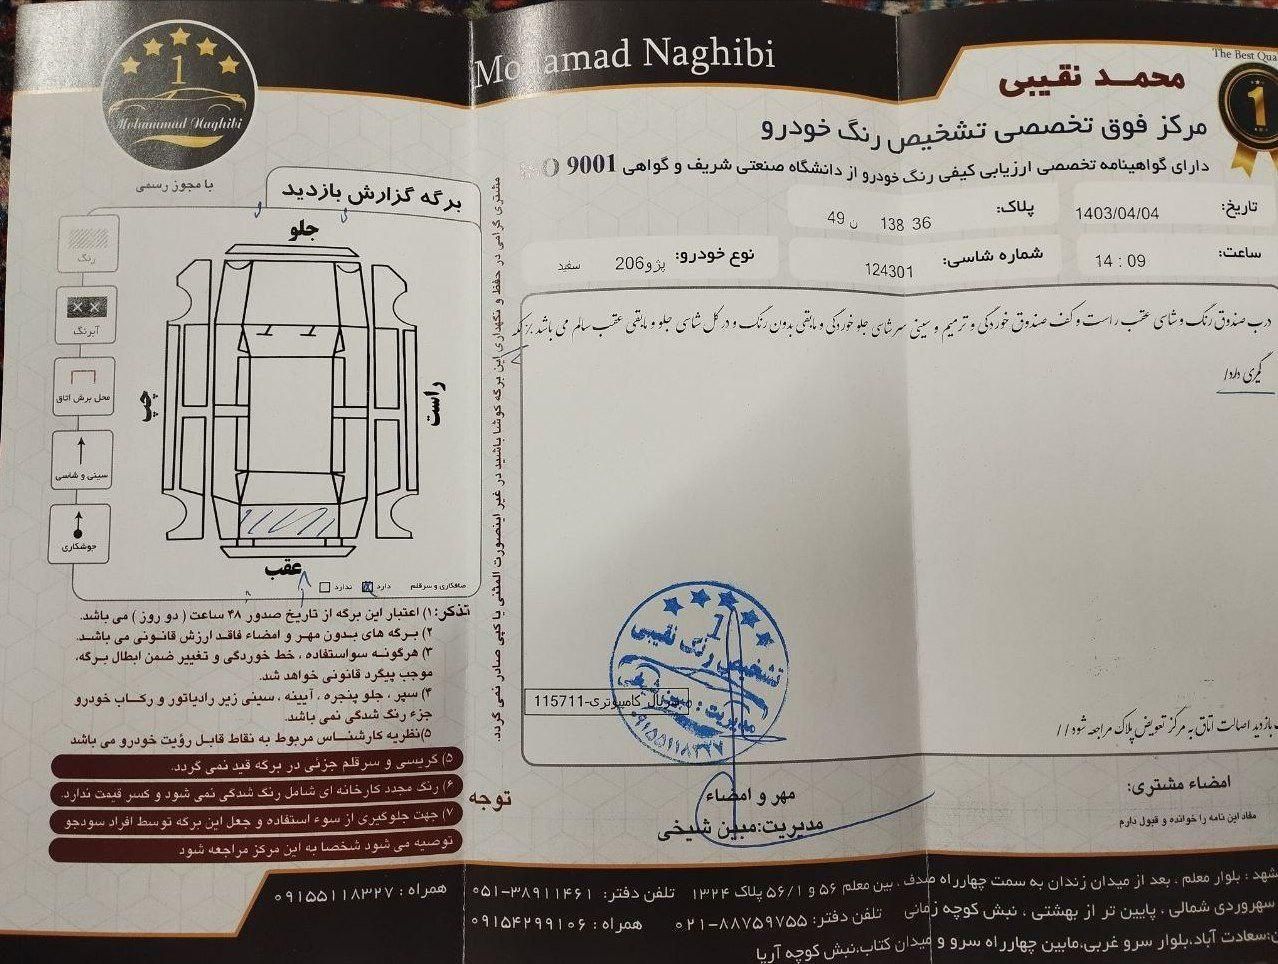 Mohamad Naghibi
The Best Qua
محمـد نقیبی
1
مرکز فوق تخصصی تشخیص رنگ خودرو
دارای گواهینامه تخصصی ارزیابی کیفی رنگ خودرو از دانشگاه صنعتی شریف و گواهی ISO 9001
تاریخ: 1403/04/04
پلاک: 36 138 ن 49
ساعت: 14 : 09
شماره شاسی: 124301
نوع خودرو: پژو206 سفید
درب صندوق رنگ و شاسی عقب راست و کف صندوق خوردگی و ترمیم و سینی سرشاسی جلو خوردگی و مابقی بدون رنگ و در کل شاسی جلو و مابقی عقب سالم می باشد
گیری دارد/
بازدید اصالت اتاق به مرکز تعویض پلاک مراجعه شود//
سریال کامپیوتری-115711
1
تشخیص رنگ نقیبی
امضاء مشتری:
مفاد این نامه را خوانده و قبول دارم
مهر و امضاء
مدیریت:مبین شیخی
مشتری گرامی در حفظ و نگهداری این برگه کوشا باشید در غیر اینصورت المثنی یا کپی صادر نمی گردد.
1
Mohammad Naghibi
با مجوز رسمی
برگه گزارش بازدید
جلو
رنگ
آبرنگ
محل برش اتاق
سینی و شاسی
جوشکاری
چپ
راست
عقب
صافکاری و سرقلم دارد ندارد
تذکر: ۱) اعتبار این برگه از تاریخ صدور ۴۸ ساعت ( دو روز ) می باشد.
۲) برگه های بدون مهر و امضاء فاقد ارزش قانونی می باشد.
۳) هرگونه سواستفاده ، خط خوردگی و تغییر ضمن ابطال برگه،
موجب پیگرد قانونی خواهد شد.
۴) سپر ، جلو پنجره ، آیینه ، سینی زیر رادیاتور و رکاب خودرو
جزء رنگ شدگی نمی باشد.
۵)نظریه کارشناس مربوط به نقاط قابل رؤیت خودرو می باشد
توجه
۵) گریسی و سرقلم جزئی در برگه قید نمی گردد.
۶) رنگ مجدد کارخانه ای شامل رنگ شدگی نمی شود و کسر قیمت ندارد.
۷) جهت جلوگیری از سوء استفاده و جعل این برگه توسط افراد سودجو
توصیه می شود شخصا به این مرکز مراجعه شود
شهد : بلوار معلم . بعد از میدان زندان به سمت چهارراه صدف . بین معلم ۵۶ و ۵۶/۱ پلاک ۱۳۲۴ تلفن دفتر: ۳۸۹۱۱۴۶۱-۰۵۱ همراه : ۰۹۱۵۵۱۱۸۳۲۷
سهروردی شمالی ، پایین تر از بهشتی ، نبش کوچه زمانی تلفن دفتر: ۸۸۷۵۹۷۵۵-۰۲۱ همراه : ۰۹۱۵۴۲۹۹۱۰۶
سعادت آباد،بلوار سرو غربی،مابین چهارراه سرو و میدان کتاب،نبش کوچه آریا